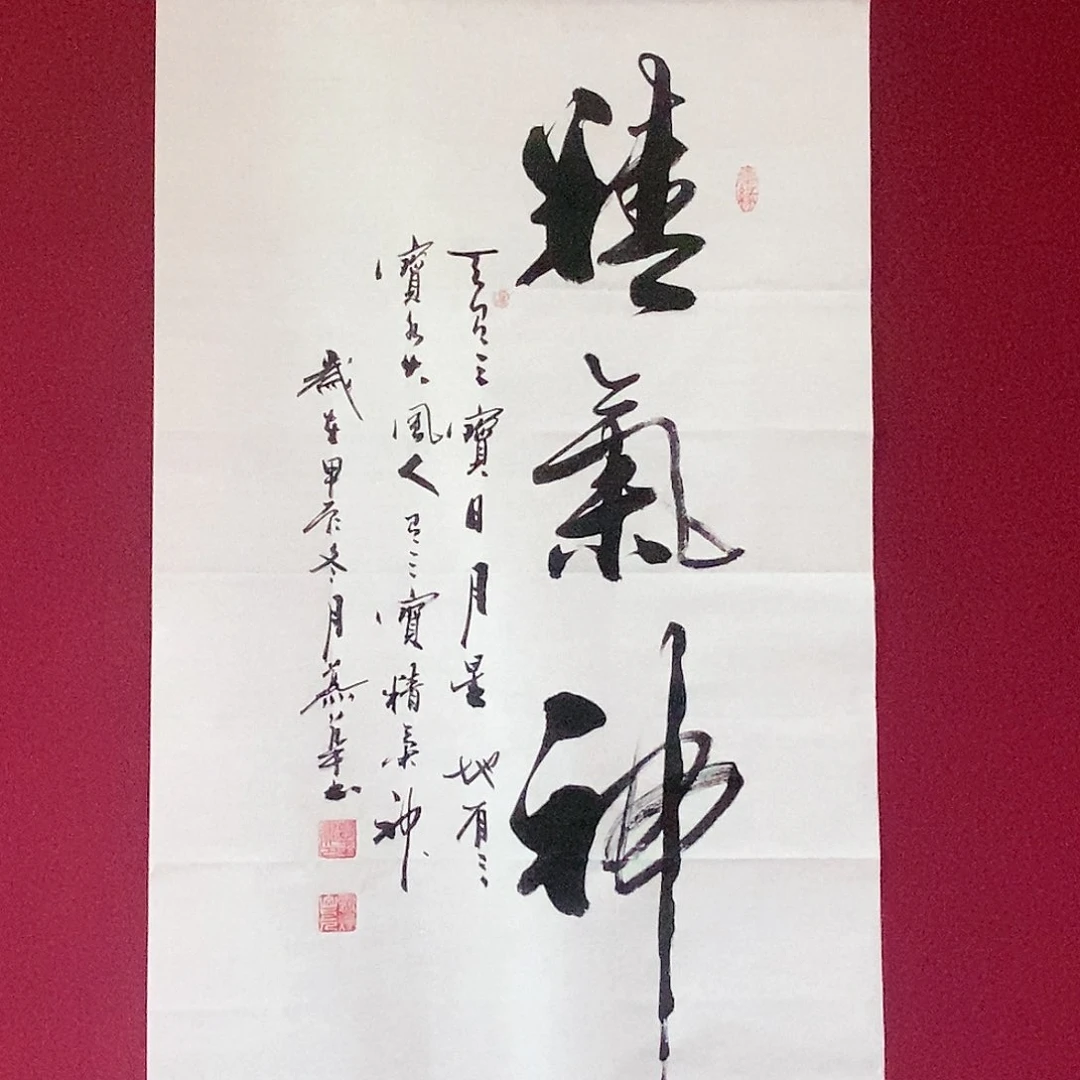 精氣神
天有三寶日月星地有三
寶水火風人有三寶精氣神
歲在甲辰冬月慕華书